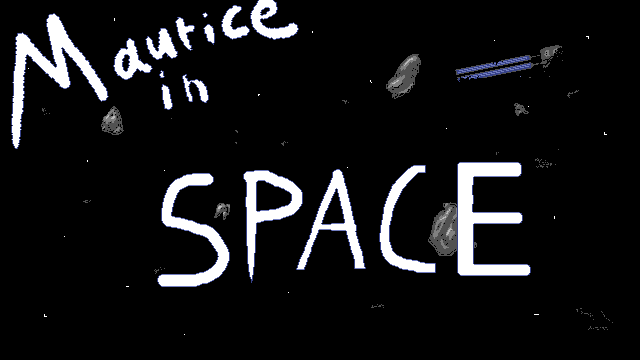 Maurice
in
SPACE